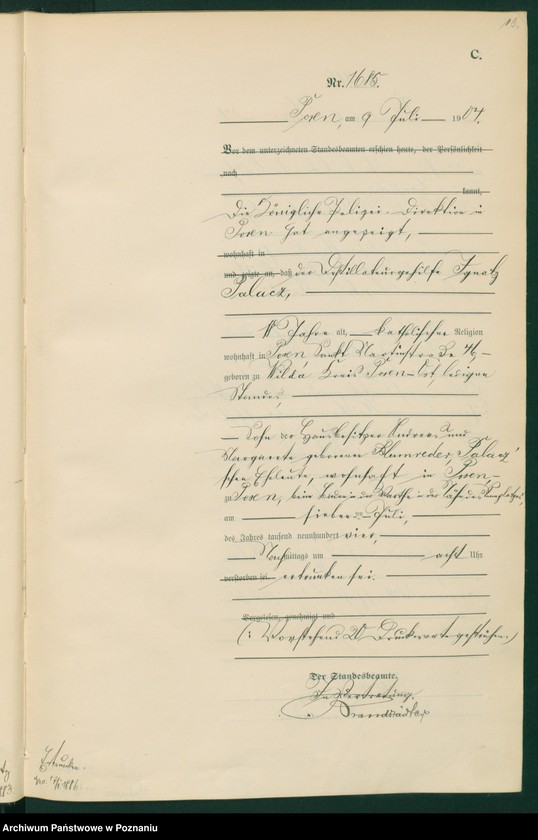 C.
Nr. 1615.
Posen, am 9 Juli 1904.
Vor dem unterzeichneten Standesbeamten erschien heute, der Persönlichkeit
nach
kannt,
Die Königliche Polizei-Direktion in
Posen hat angezeigt,
wohnhaft in
und zeigte an, daß der Destillateurgehilfe Ignatz
Palacz,
Jahre alt, katholischer Religion
wohnhaft in Posen Sankt Martinstraße 46,
geboren zu Wilda Kreis Posen-Ost, ledigen
Standes,
Sohn der Hausbesitzer Andreas und
Margarete geborenen Blumreder, Palacz'
schen Eheleute, wohnhaft in Posen
zu Posen, beim Baden in der Warthe in der Nähe des
am sieben ten Juli,
des Jahres tausend neunhundert vier,
Nachmittags um acht Uhr
verstorben sei. ertrunken sei.
Vorgelesen, genehmigt und
(: Vorstehend 20 Druckworte gestrichen.)
Der Standesbeamte.
In Vertretung.
Brandstädter
Archiwum Państwowe w Poznaniu